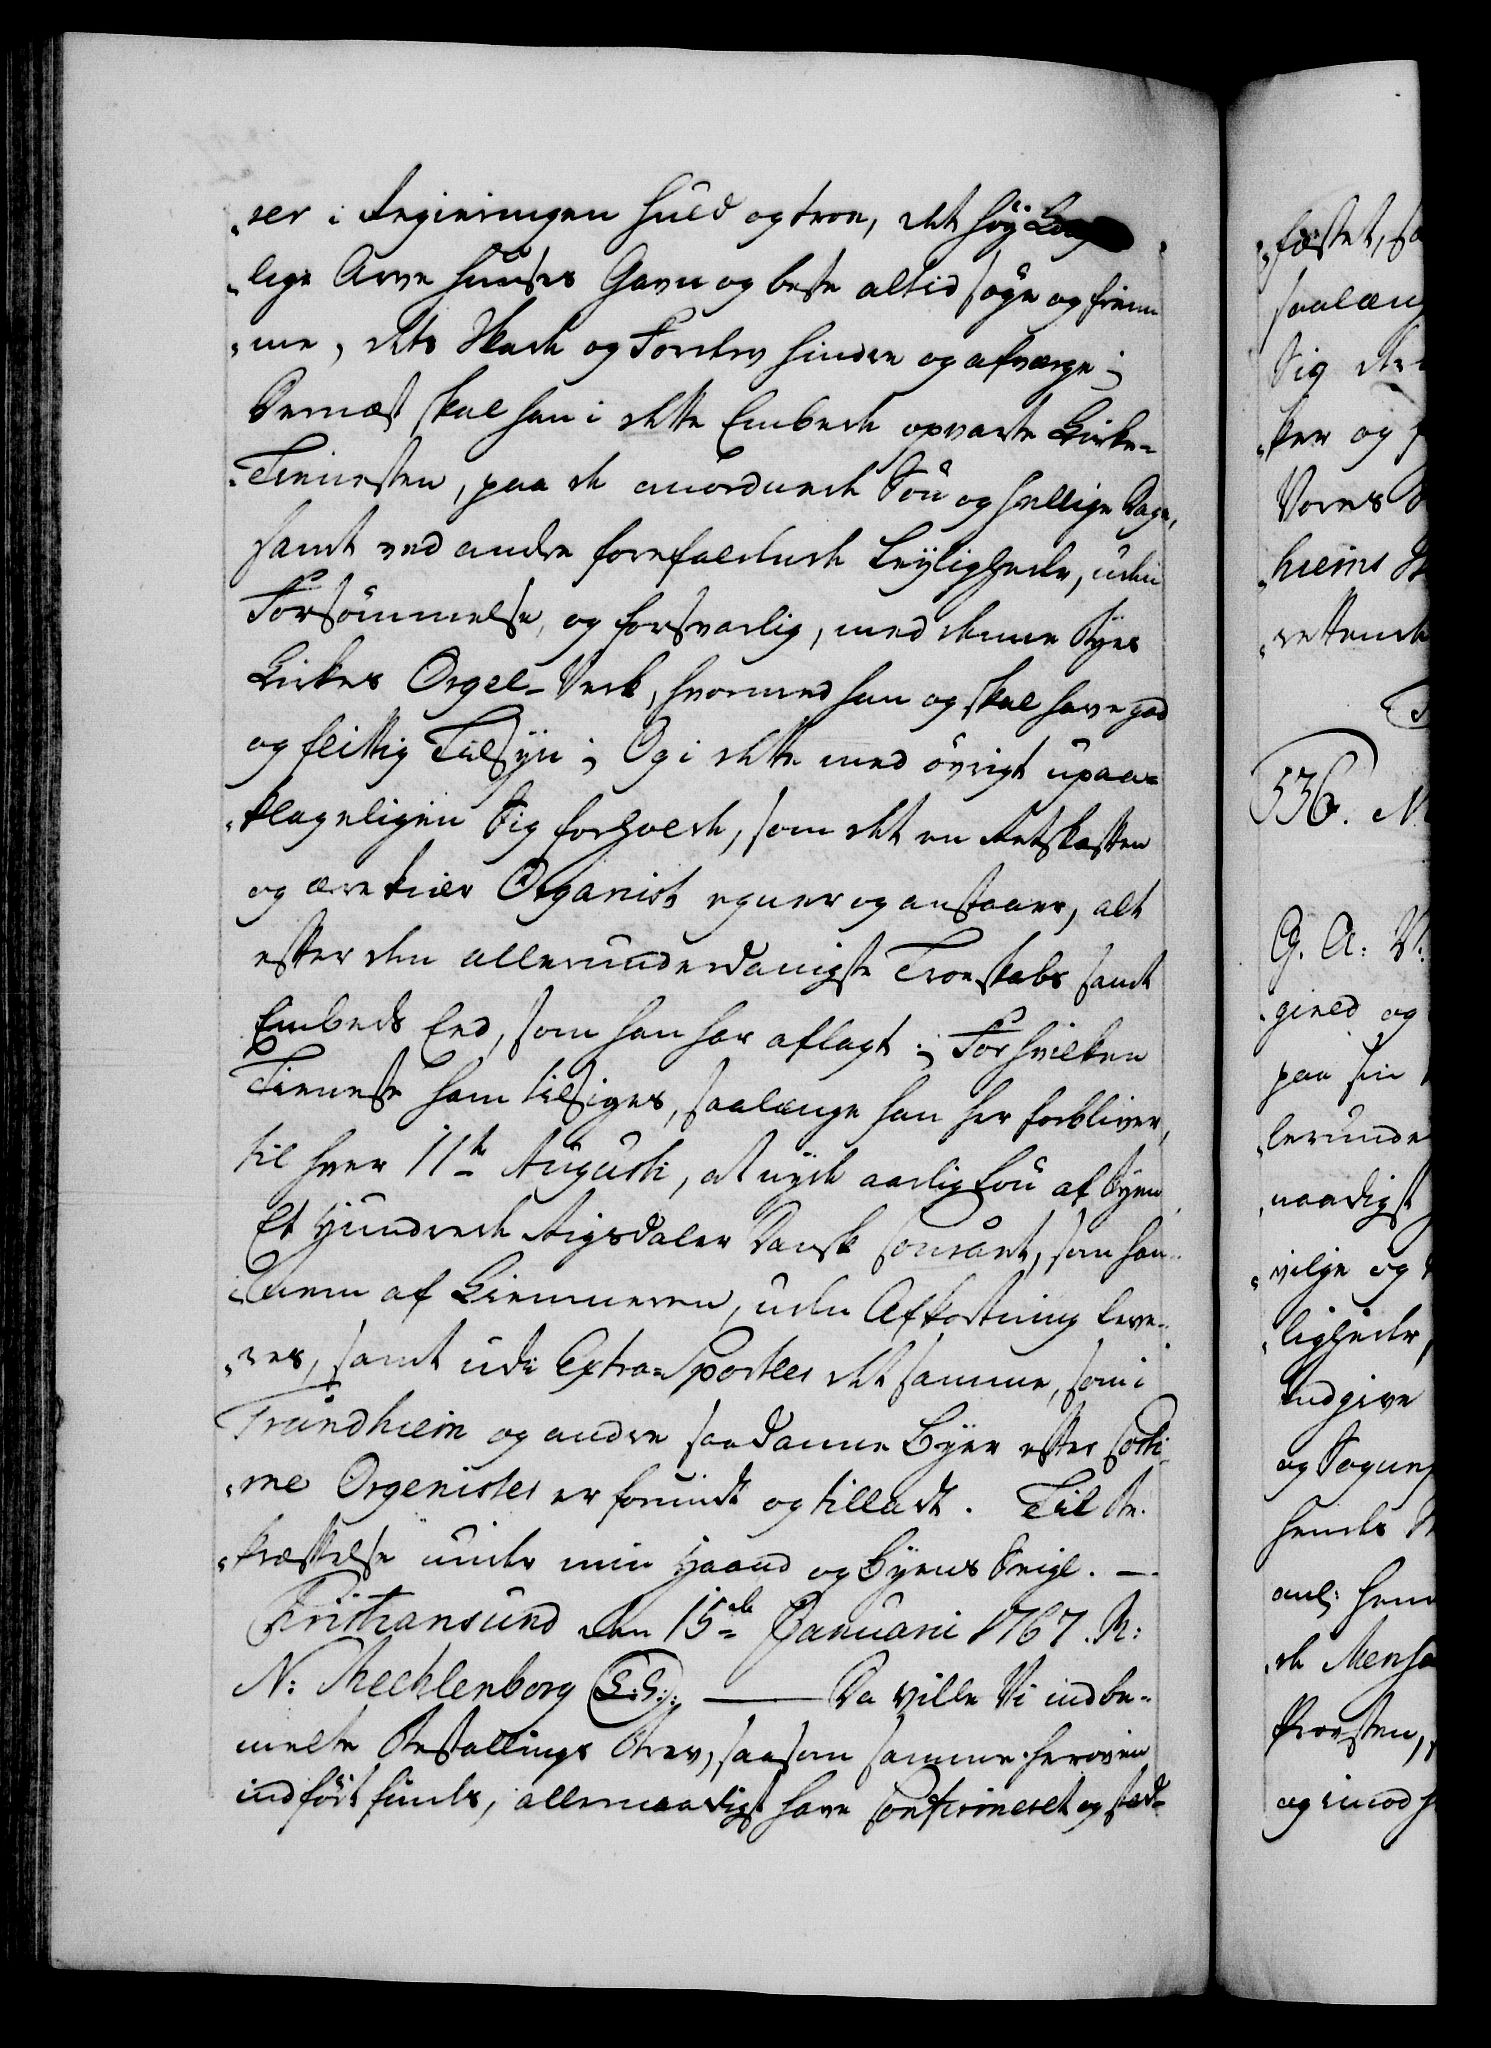 „rer i Regieringen huld og troe, det høy Lov
„lige Arve Huuses Gavn og beste altid søge og frem
„me, dets Skade og Forderv hindre og afværge;
Dernæst skal han i dette Embede opvarte Kirke-
„Tienesten, paa de anordnede Søn og hellige Dage,
samt ved andre forefaldende Leyligheder, uden
Forsømmelse, og forsvarlig, med denne Byes
Kirkes Orgel-Verk, hvormed han og skal have god
og flittig Tilsyn; Og i dette med øvrigt upaa-
„klageligen Sig forholde, som det en Retskaffen
og ærekiær Organist egner og anstaaer, alt
efter den allerunderdanigste Troeskabs samt
Embeds Eed, som han har aflagt; For hvilken
Tieneste ham tilsiges, saalænge han her forbliver,
til hver 11te Augusti, at nyde aarlig Løn af Byen
Et Hundrede Rigsdaler Dansk Courant, som han-
„nem af Kiemneren, uden Afkortning leve-
„res, samt udi Extra-Sportler det samme, som i
Trundhiem og andre saadanne Byer efter Costi
„me Orgenister er forundt og tilladt. Til Be-
„kræftelse under min Haand og Byens Seigl. —
Christiansund den 15de Januarii 1767. R:
N: Mecklenborg (L:S:), — Da ville Vi indbe-
melte Bestallings Brev, saasom samme heroven
indført findes, allernaadigst have Confirmeret og stad-
„fæstet, sa
saalæng
Sig der
„ker og f
Vores
„hiems
„rettende
536. M
G. A: V:
„gived og
paa sin
„lerunde
„naadigst
„vilge og
„ligheder,
indgive
og Sogne
hendes
anl: hen
de Mensa
Provsten,
og imod